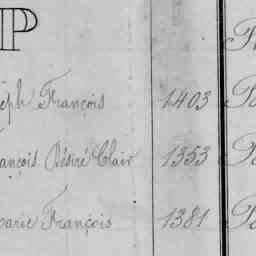 P
eph François 1403
ançois Désiré Clair 1353
arie François 1381